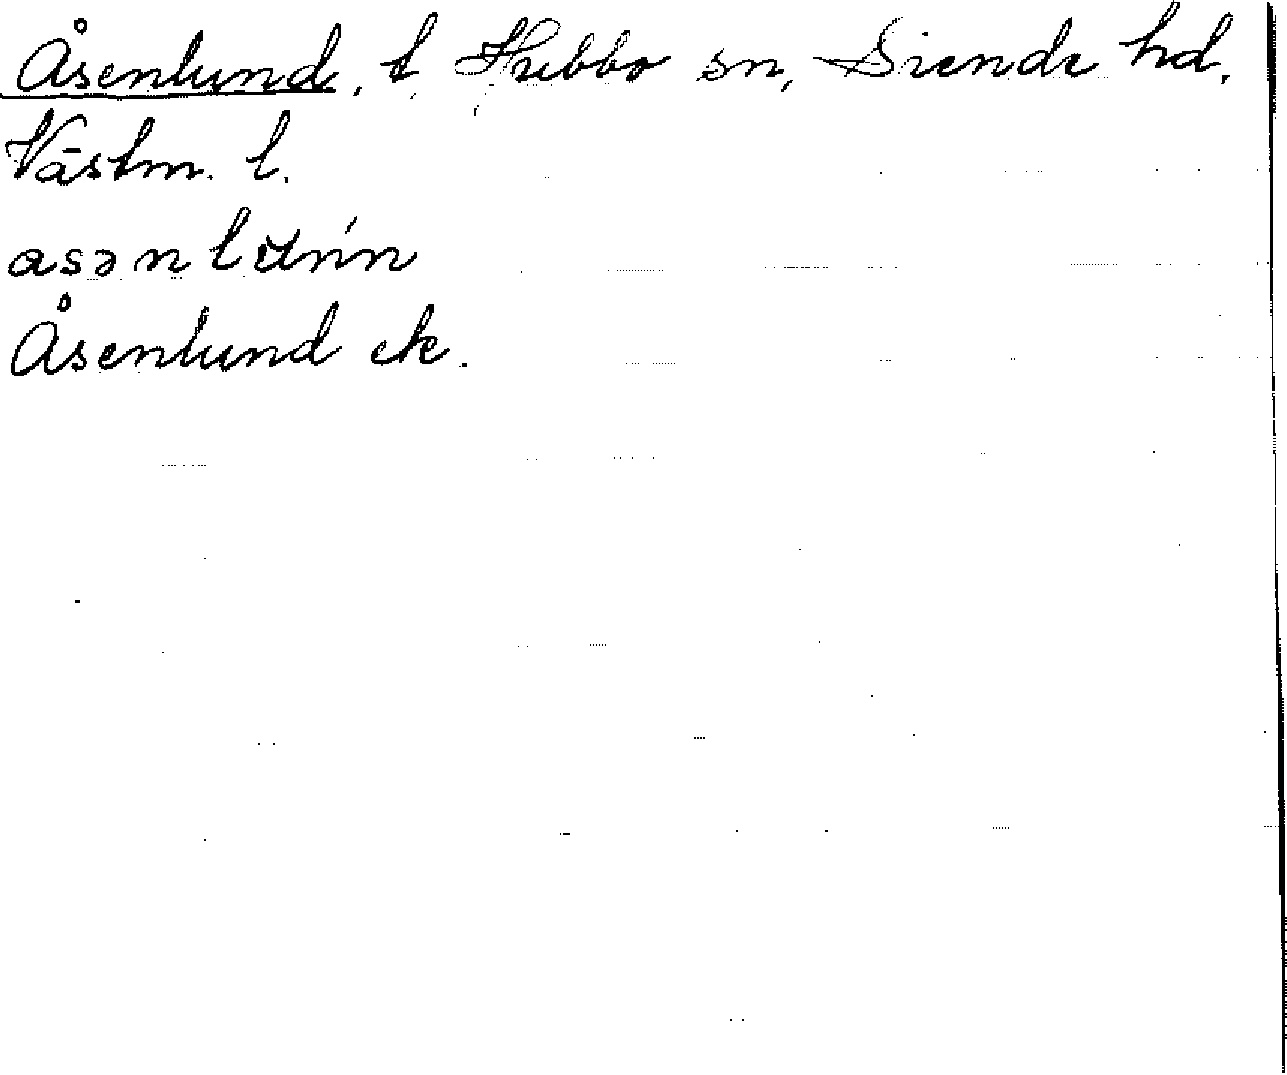 Åsenlund, t Hubbo sn, Siende hd.
Västm. l.
Åsenlund ek.